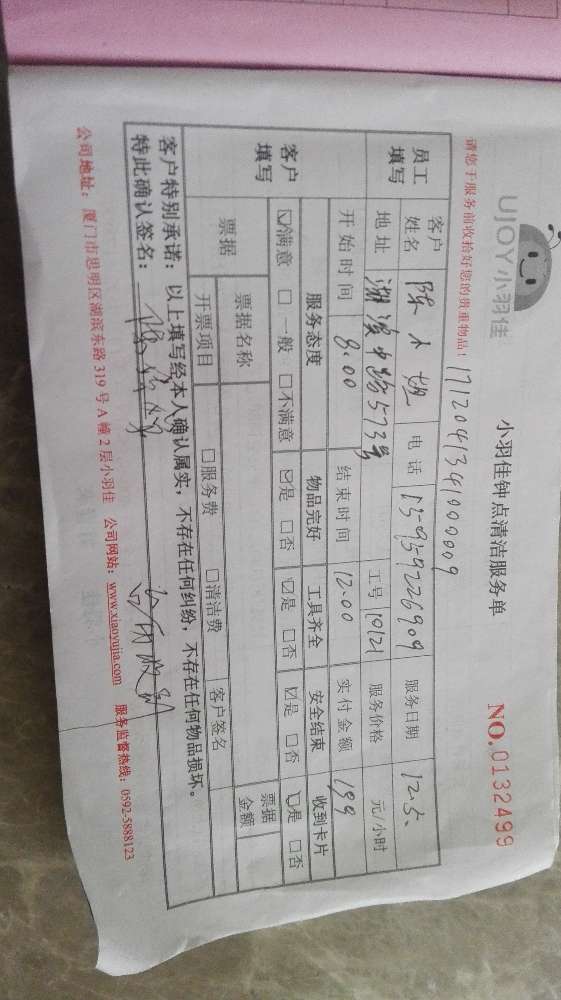 UJOY小羽佳
小羽佳钟点清洁服务单
NO.0132499
请您于服务前收拾好您的贵重物品！
1712041341000009
员工填写 客户姓名 陈小姐 电话 15959226909 服务日期 12.5.
地址 湖滨中路573号 工号 10121 服务价格 元/小时
开始时间 8.00 结束时间 12.00 实付金额 199
客户填写 服务态度 物品完好 工具齐全 安全结束 收到卡片
☑满意 □一般 □不满意 ☑是 □否 ☑是 □否 ☑是 □否 ☑是 □否
票据 票据名称 客户签名 票据金额
开票项目 □服务费 □清洁费
客户特别承诺：以上填写经本人确认属实，不存在任何纠纷，不存在任何物品损坏。
特此确认签名：
公司地址：厦门市思明区湖滨东路319号A幢2层小羽佳 公司网站：www.xiaoyujia.com 服务监督热线：0592-5888123